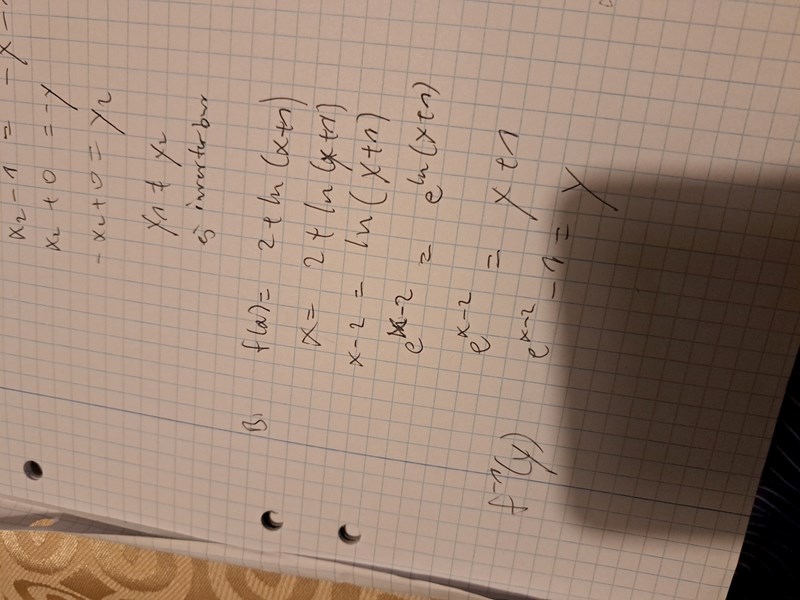 x₂ - 1 = -x -
x₂ + 0 = -y
-x₂ + 0 = y₂
y₁ ≠ y₂
ej inverterbar
B) f(x) = 2 + ln(x+1)
x = 2 + ln(y+1)
x-2 = ln(y+1)
e^x-2 = e^ln(y+1)
e^x-2 = y+1
f⁻¹(y) e^x-2 - 1 = y